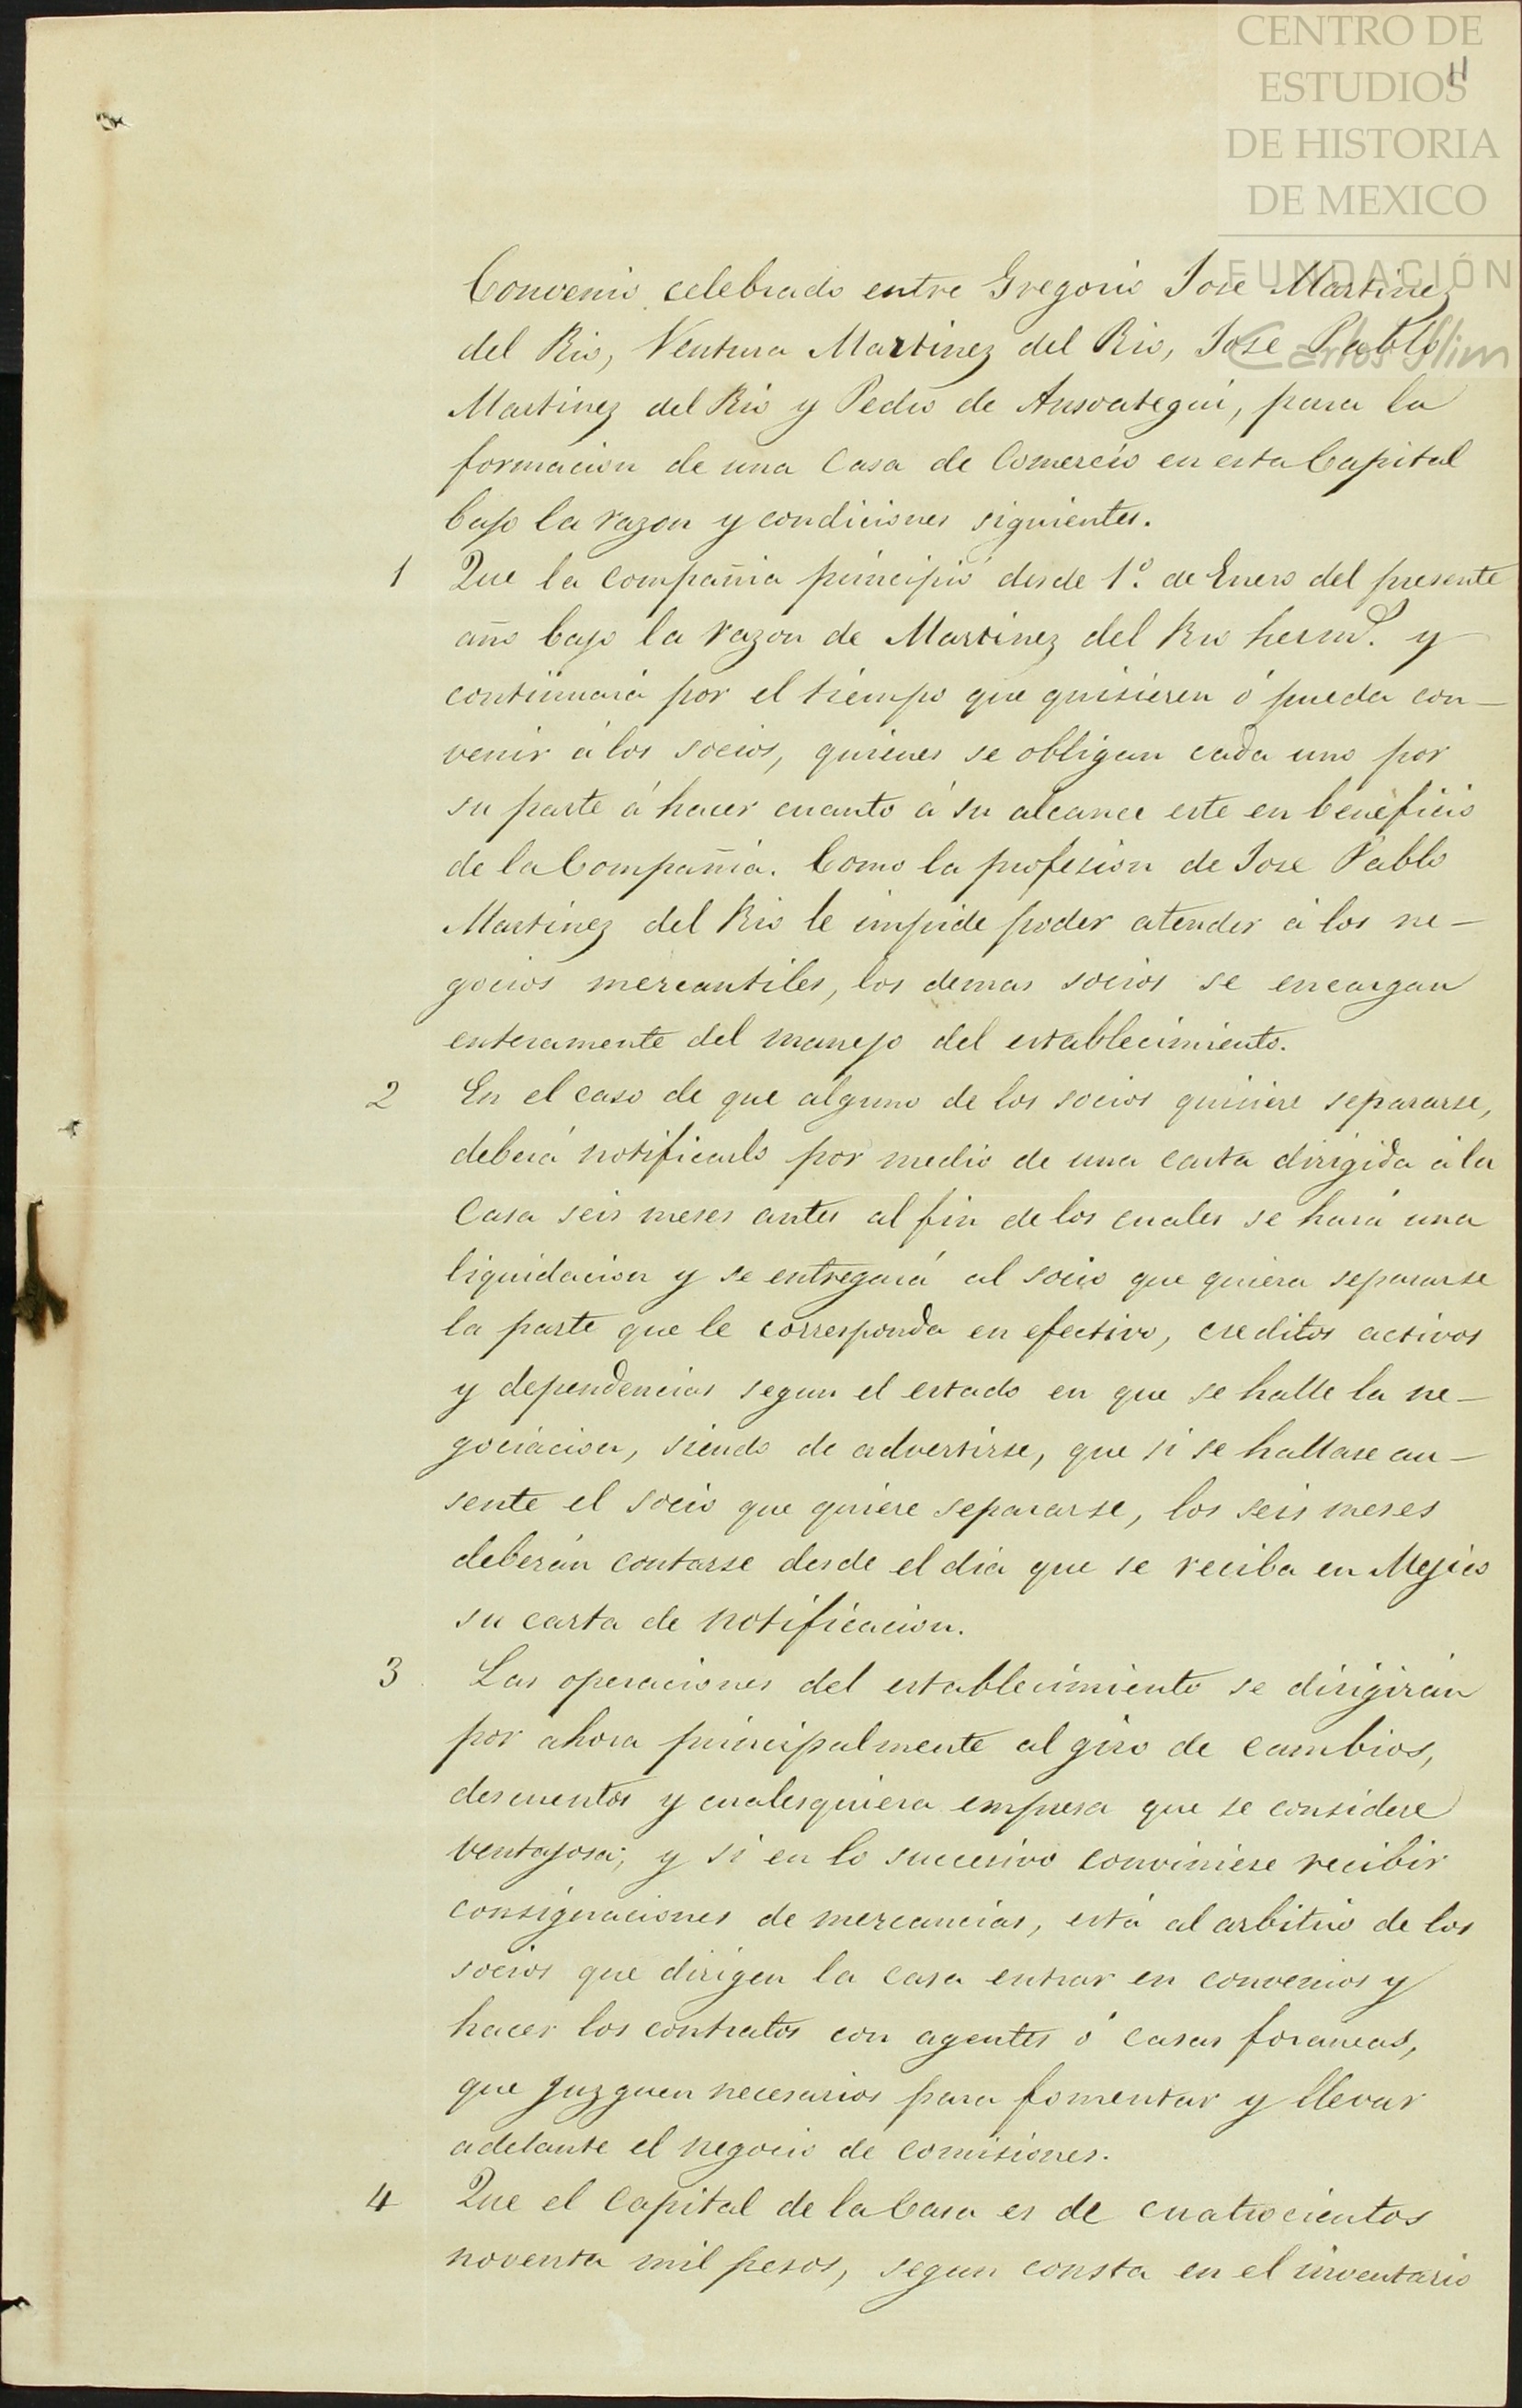 CENTRO DE
ESTUDIOS
DE HISTORIA
DE MEXICO
FUNDACIÓN
Carlos Slim
11
Convenio celebrado entre Gregorio Jose Martinez
del Rio, Ventura Martinez del Rio, Jose Pablo
Martinez del Rio y Pedro de Ansoategui, para la
formacion de una Casa de Comercio en esta Capital
bajo la razon y condiciones siguientes.
1 Que la compañia principió desde 1º. de Enero del presente
año bajo la razon de Martinez del Rio herms. y
continuará por el tiempo que quisieren ó pueda con-
venir á los socios, quienes se obligan cada uno por
su parte á hacer cuanto á su alcance este en beneficio
de la Compañia. Como la profesion de Jose Pablo
Martinez del Rio le impide poder atender á los ne-
gocios mercantiles, los demas socios se encargan
enteramente del manejo del establecimiento.
2 En el caso de que alguno de los socios quisiere separarse,
deberá notificarlo por medio de una carta dirigida á la
Casa seis meses antes al fin de los cuales se hará una
liquidacion y se entregará al socio que quiera separarse
la parte que le corresponda en efectivo, creditos activos
y dependencias segun el estado en que se halle la ne-
gociacion, siendo de advertirse, que si se hallase au-
sente el socio que quiere separarse, los seis meses
deberán contarse desde el dia que se reciba en Mejico
su carta de notificacion.
3 Las operaciones del establecimiento se dirigirán
por ahora principalmente al giro de cambios,
descuentos y cualesquiera empresa que se considere
ventajosa; y si en lo sucesivo conviniese recibir
consignaciones de mercancias, está al arbitrio de los
socios que dirigen la casa entrar en convenios y
hacer los contratos con agentes ó casas foraneas,
que juzguen necesarios para fomentar y llevar
adelante el negocio de comisiones.
4 Que el Capital de la Casa es de cuatrocientos
noventa mil pesos, segun consta en el inventario